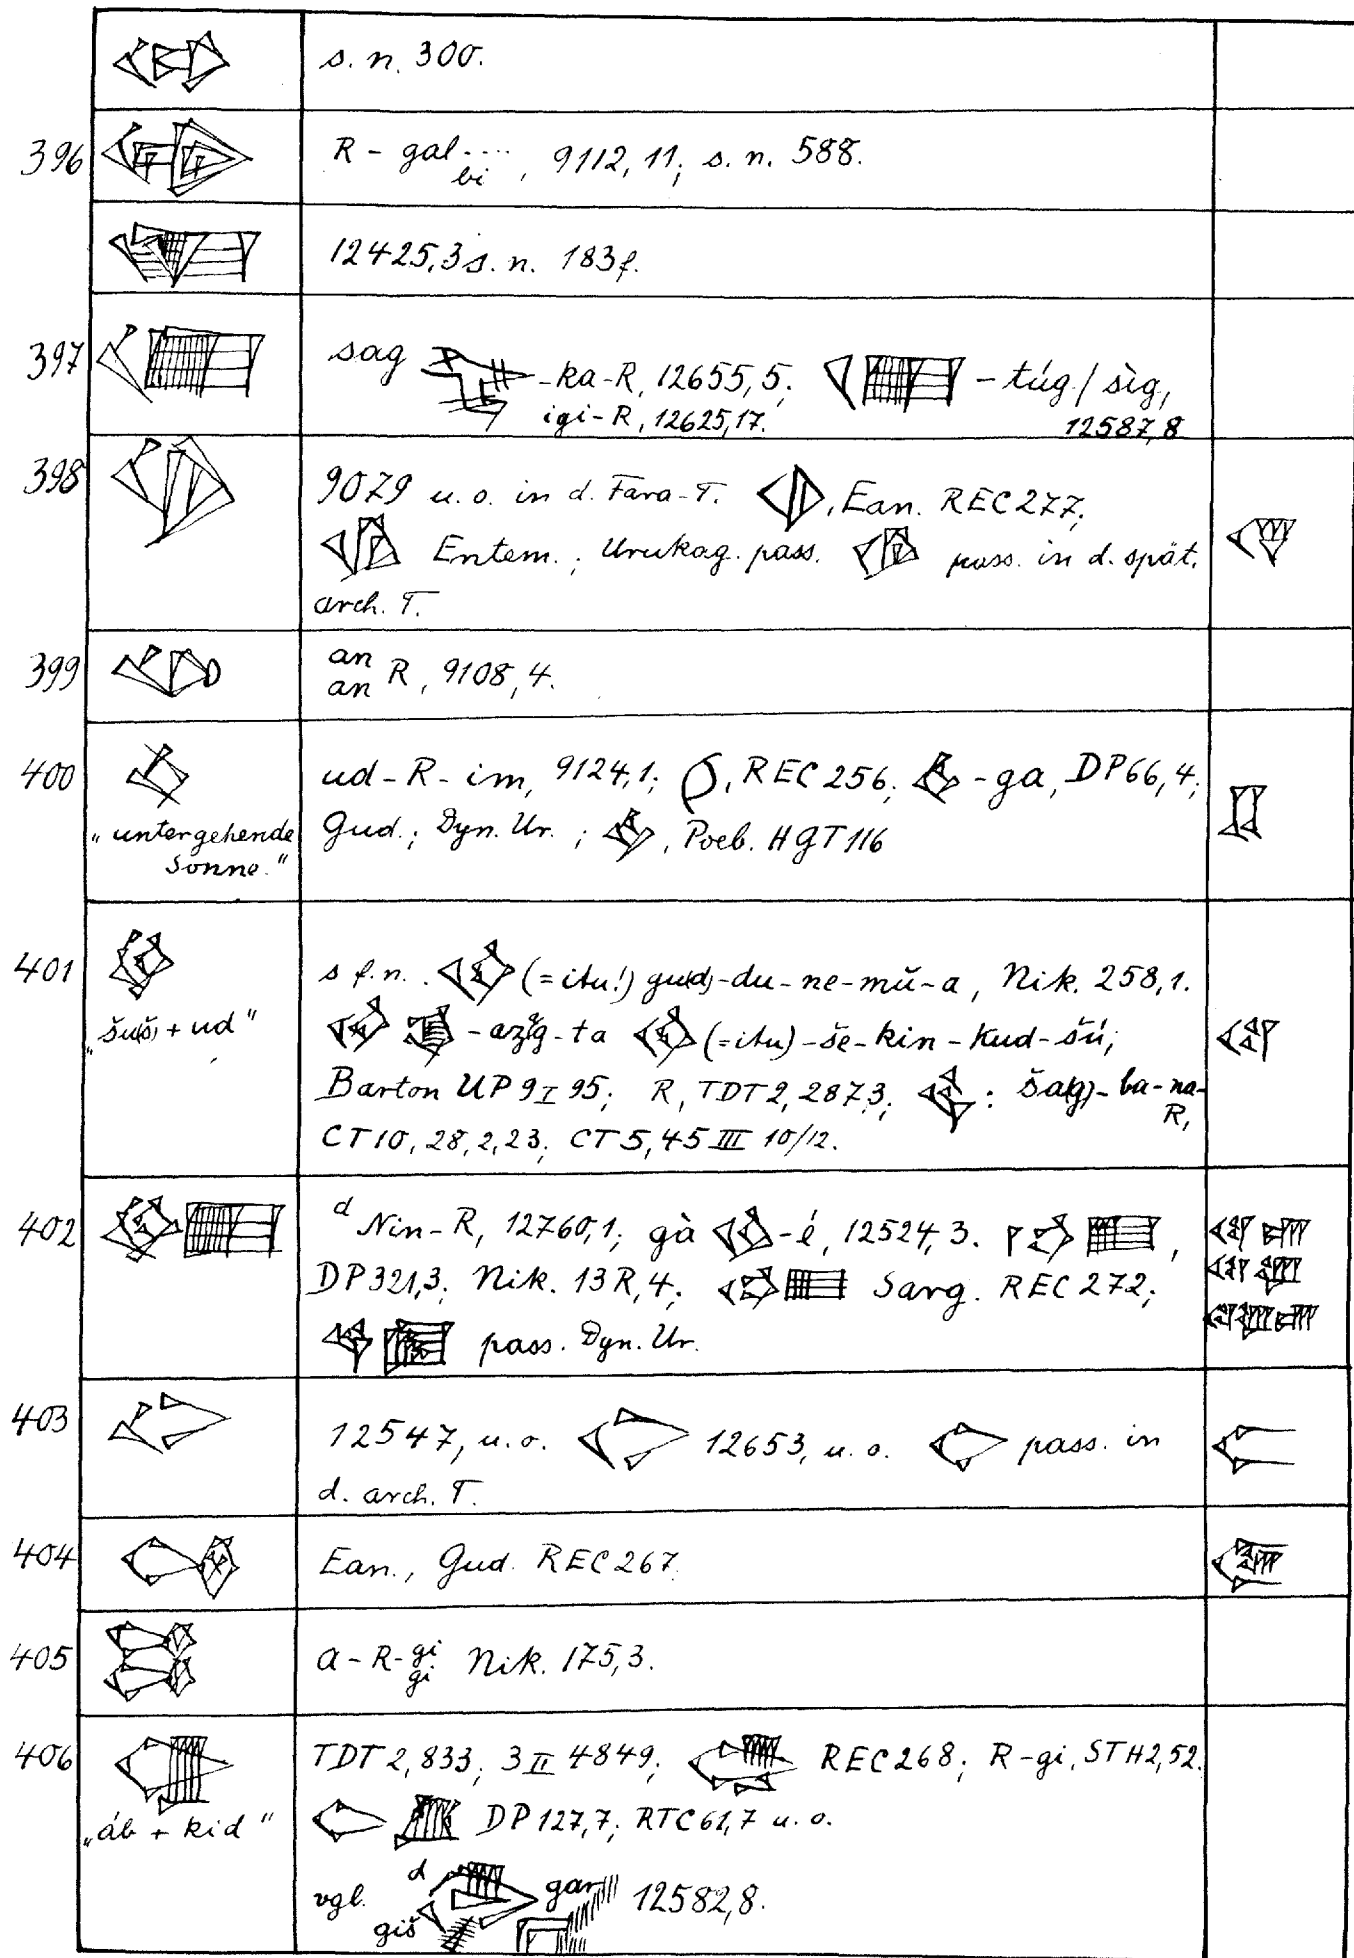 s. n. 300.
396 R - gal .... , 9112, 11; s. n. 588.
bi
12425,3 s. n. 183f.
397 sag -ka-R, 12655,5; - túg / sìg,
igi-R, 12625,17. 12587,8
398 9079 u. o. in d. Fara-T. , Ean. REC 277;
Entem.; Urukag. pass. pass. in d. spät.
arch. T.
399 an R, 9108,4.
an
400 ud - R - im, 9124,1; , REC 256; - ga, DP 66,4;
„untergehende Gud.; Dyn. Ur. ; , Poeb. HGT 116
Sonne."
401 s f. n. (= itu!) gu(d)-du-ne-mŭ-a, Nik. 258,1.
„šu(š) + ud" -ta (=itu)-še-kin-kud-šú;
Barton UP 9 I 95; R, TDT 2, 2873; : ša(g)-ba-na-
R,
CT 10, 28, 2, 23; CT 5, 45 III 10/12.
402 d Nin-R, 12760,1; gà -é, 12524,3. ,
DP 321,3; Nik. 13 R, 4; Sarg. REC 272;
pass. Dyn. Ur.
403 12547, u. o. 12653, u. o. pass. in
d. arch. T.
404 Ean., Gud. REC 267.
405 a - R - gi Nik. 175,3.
gi
406 TDT 2, 833; 3 II 4849; REC 268; R-gi, STH 2,52.
„áb + kid" DP 127,7; RTC 61,7 u. o.
vgl. d gar 12582,8.
giš